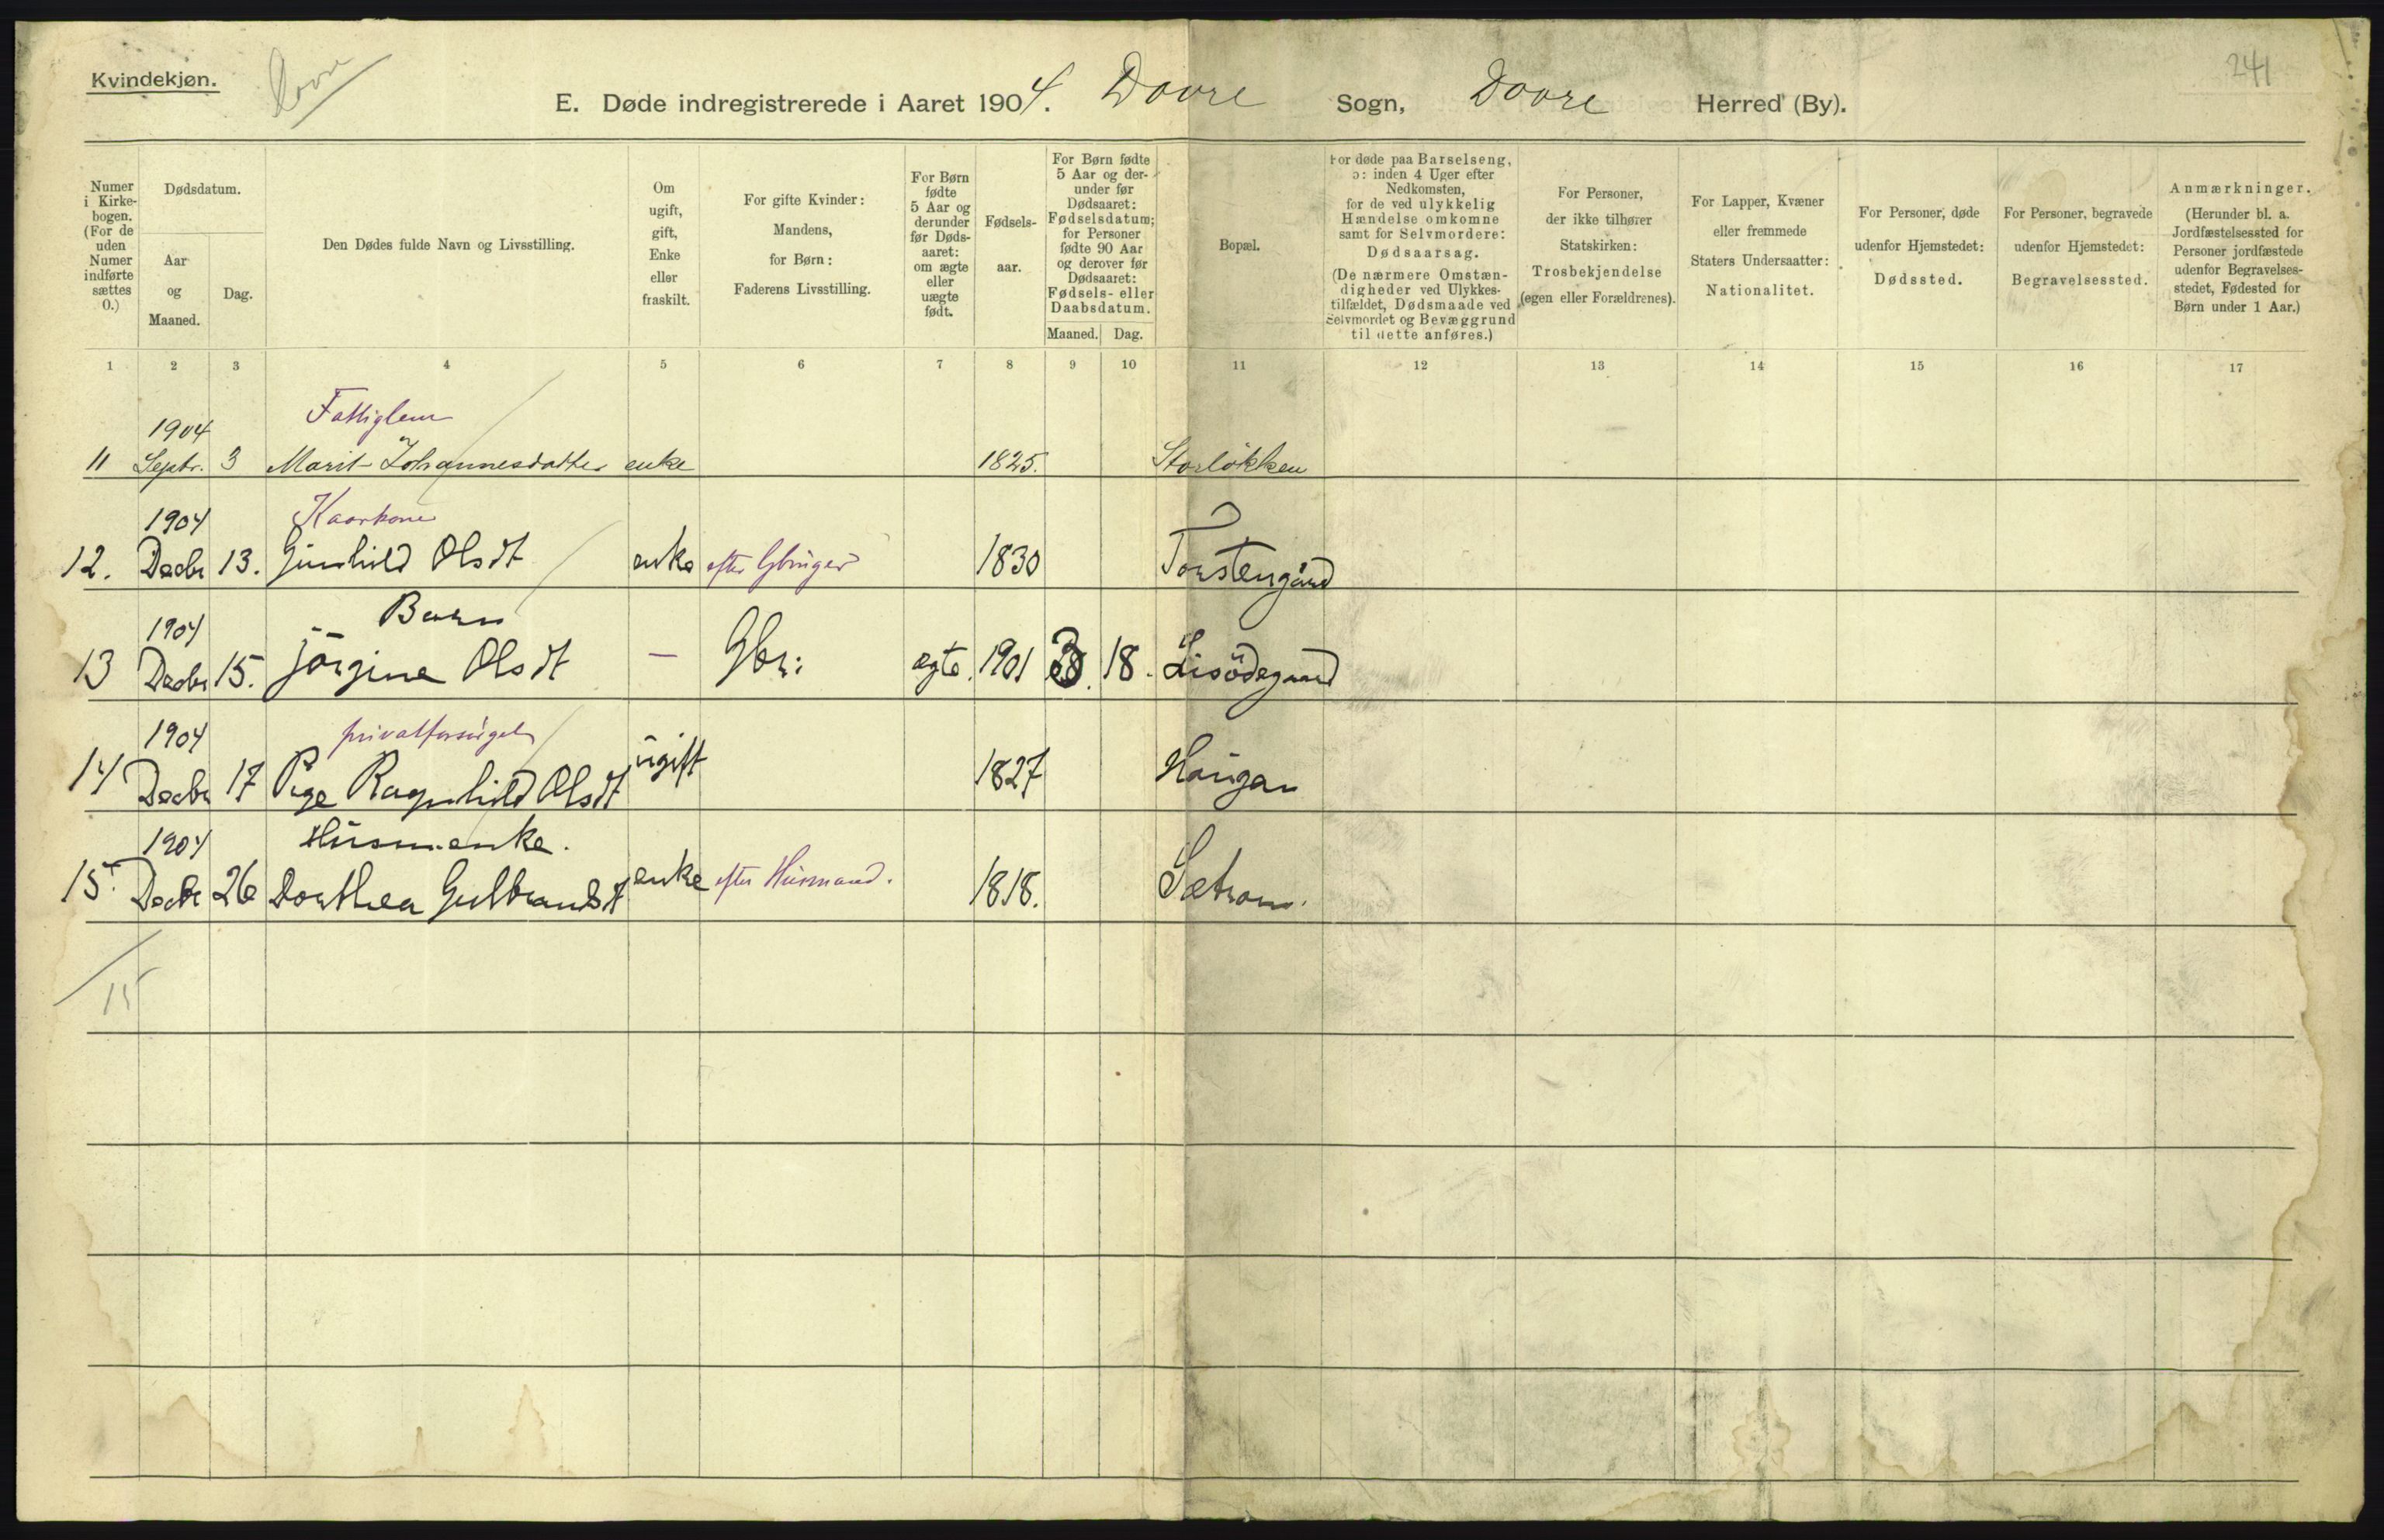 Kvindekjøn.
Dovre
E. Døde indregistrerede i Aaret 1904. Dovre Sogn, Dovre Herred (By).
241
Numer i Kirkebogen. (For de uden Numer indførte sættes 0.)
Dødsdatum.
Aar og Maaned.
Dag.
Den Dødes fulde Navn og Livsstilling.
Om ugift, gift, Enke eller fraskilt.
For gifte Kvinder: Mandens, for Børn: Faderens Livsstilling.
For Børn fødte 5 Aar og derunder før Dødsaaret: om ægte eller uægte født.
Fødselsaar.
For Børn fødte 5 Aar og derunder før Dødsaaret: Fødselsdatum; for Personer fødte 90 Aar og derover før Dødsaaret: Fødsels- eller Daabsdatum.
Maaned. Dag.
Bopæl.
For døde paa Barselseng, ɔ: inden 4 Uger efter Nedkomsten, for de ved ulykkelig Hændelse omkomne samt for Selvmordere: Dødsaarsag. (De nærmere Omstændigheder ved Ulykkestilfældet, Dødsmaade ved Selvmordet og Bevæggrund til dette anføres.)
For Personer, der ikke tilhører Statskirken: Trosbekjendelse (egen eller Forældrenes).
For Lapper, Kvæner eller fremmede Staters Undersaatter: Nationalitet.
For Personer, døde udenfor Hjemstedet: Dødssted.
For Personer, begravede udenfor Hjemstedet: Begravelsessted.
Anmærkninger. (Herunder bl. a. Jordfæstelsessted for Personer jordfæstede udenfor Begravelsesstedet, Fødested for Børn under 1 Aar.)
1 2 3 4 5 6 7 8 9 10 11 12 13 14 15 16 17
1904 Fattiglem
11 Septr. 3 Marit Johannesdatter enke 1825. Storløkken
1904 Kaarkone
12. Decbr 13. Gunhild Olsdt enke efter Gbruger 1830 Torstengård
1904 Barn
13 Decbr 15. Jörgine Olsdt — Gbr: ægte. 1901 18. Lisödegaard
1904 privatforsörget
14 Decbr 17 Pige Ragnhild Olsdt ugift 1827 Haugen
1904 Husm.enke.
15. Decbr 26 Dorthea Gulbrandsdt enke efter Husmand. 1818. Sætrom.
15